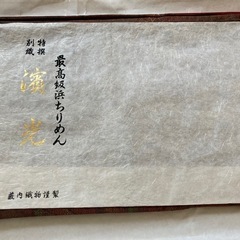 最高級浜ちりめん
特撰
別織
濱
藪内織物謹製